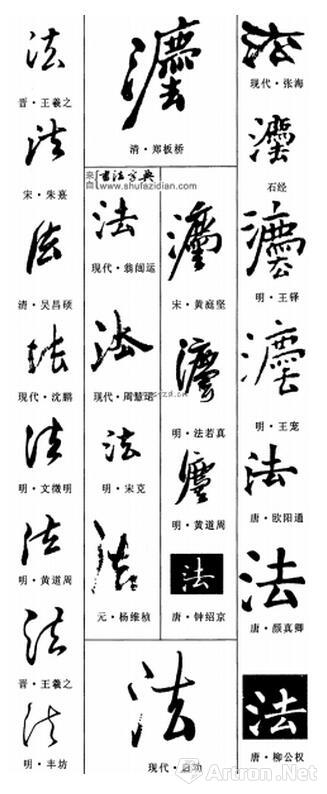 法
晋·王羲之
法
宋·朱熹
法
清·吴昌硕
法
现代·沈鹏
法
明·文徵明
法
明·黄道周
法
晋·王羲之
法
明·丰坊
灋
清·郑板桥
来自 书法字典
www.shufazidian.com
法
现代·翁闿运
法
现代·周慧珺
法
明·宋克
法
元·杨维桢
灋
宋·黄庭坚
灋
明·法若真
灋
明·黄道周
法
唐·钟绍京
法
现代·启功
法
现代·张海
灋
石经
灋
明·王铎
灋
明·王宠
法
唐·欧阳通
法
唐·颜真卿
法
唐·柳公权
Artron.Net